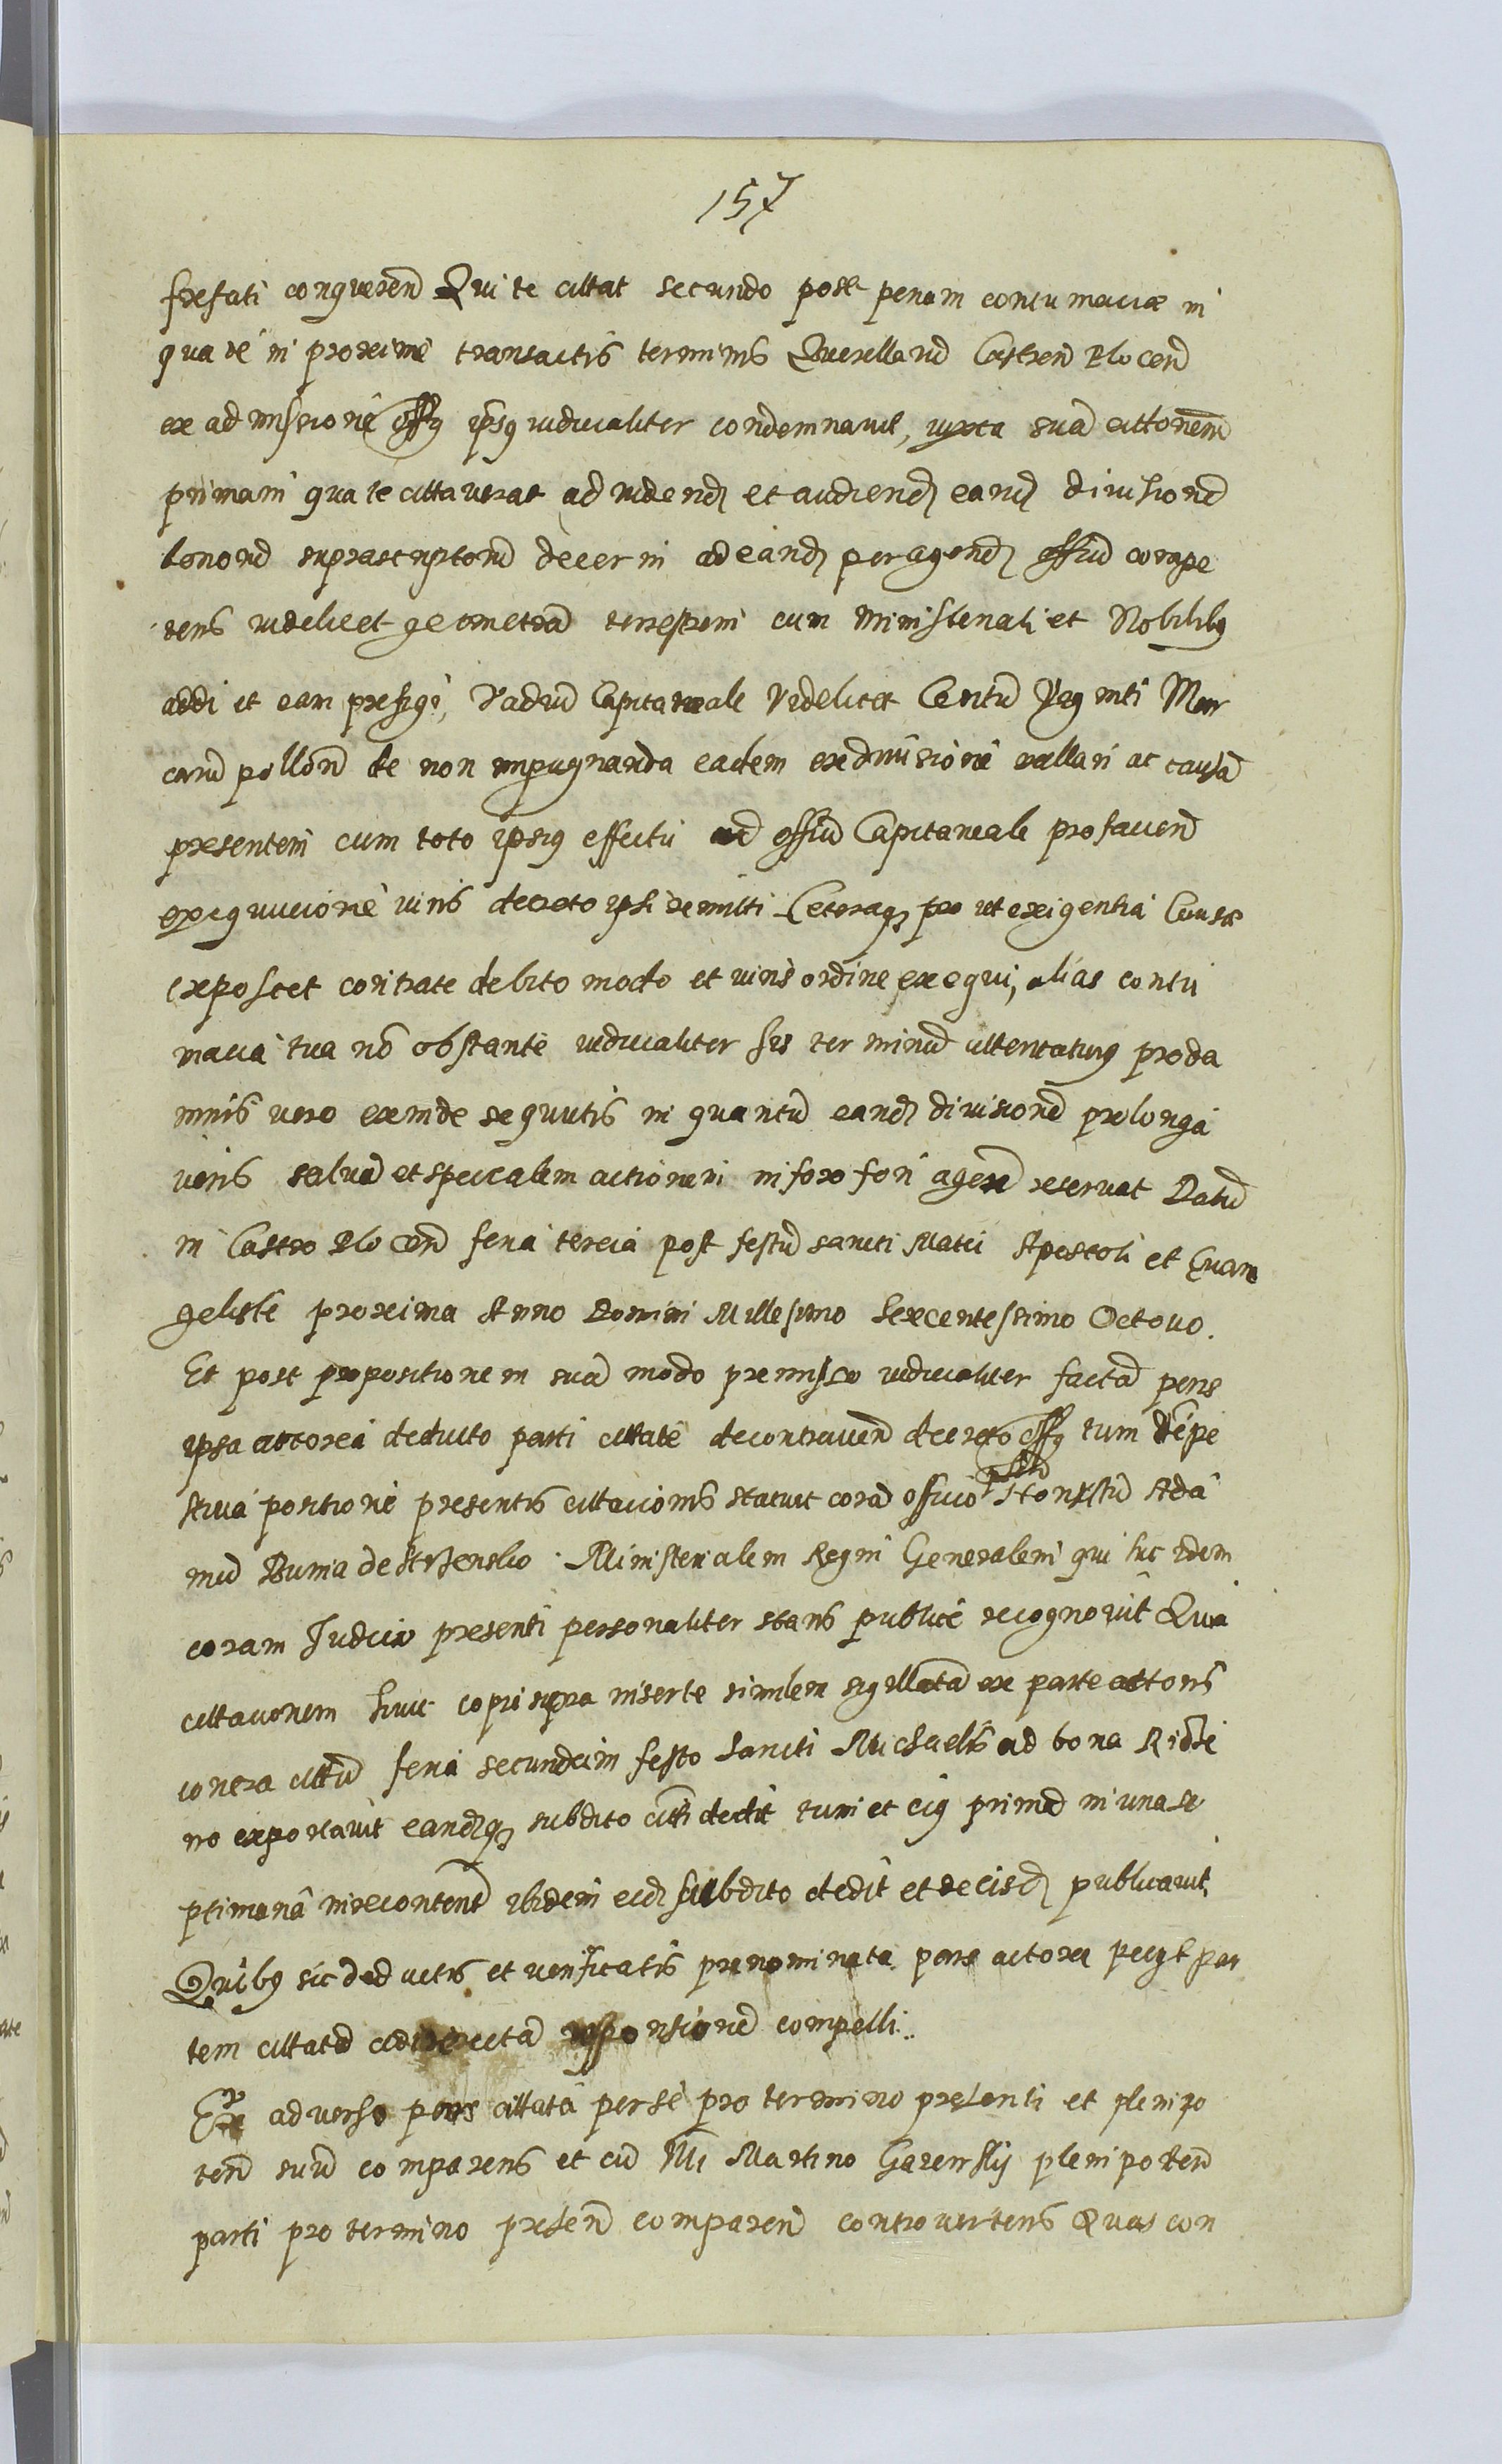 157
prefati conqueren Qui te citat secundo post penam contumaciæ in
qua te in proxime transactis terminis Querellarū Castren Plocen
ex admissione offy ipsy iudicialiter condemnavit, iuxta suā cittonem
primam qua te cittaverat ad videnđ et audienđ eanđ divisionē
bonorū suprascriptorū decerni ad eanđ peragenđ offiū compe
tens videlicet geometrā terrestrem cum Ministeriali et Nobilibȝ
addi et eam prefigi, Vadiū Capitaneale Videlicet Centū Viginti Mar
carū pollon de non impugnanda eadem exdivisione vallari ac causā
presentem cum toto ipsiȝ effectu ad offiū Capitaneale pro facien
exequucione iuris decreto ipsi remitti Ceteraqȝ pro ut exigentia Causæ
exposcet contra te debito modo et iuris ordine exequi, alias contu
macia tua nō obstante iudicialiter sis terminū attentaturȝ pro da
mnis vero exinde sequutis in quantū eanđ divisionē prolonga
veris salvā et specialem actionem in foro fori agere reservat Datū
in Castro Plocen feria tercia post festū sancti Matei Apostoli et Evan
geliste proxima Anno Domini Millesimo Sexcentessimo Octovo.
Et post propositionem suā modo premisso iudicialiter factā pars
ipsa actorea deducto parti cittate de contraven decreto offy tum
stiva positione presentis cittacionis statuit corā officio Honestū Ada
mū Buma de Ministerialem Regni Generalem qui hic idem
coram Iudicio presenti personaliter stans publice recognovit Quia
cittacionem huic copie supra inserte similem sigillatā ex parte actoris
contra cittū feria secunda in festo Sancti Michaelis ad bona
no exportavit eandȝqȝ subdito citti dedit tum et eiȝ primā in una se
ptimana ibidem eiđ subdito dedit et de eisđ publicavit.
Quibȝ sic deductis et verificatis prenominata pars actorea peciit par
tem cittatā ad directā responsionē compelli.
Ex adverso pars cittata per se pro termino presenti et plenipo
ten suū comparens et cū Martino plenipoten
parti pro termino presen comparen controvertens Quas con